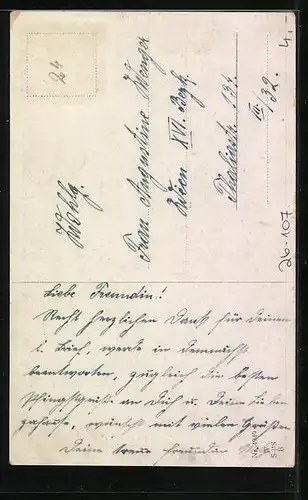 24
4.-
Wohlg
Frau Augustine Wenger
Wien XVI. Bezk.
Thaliastr. 134.
III/32.
26-107
Liebe Freundin!
Recht herzlichen Dank für Deinen
l. Brief, werde in demnächst
beantworten, zugleich die besten
Pfingstgrüße an Dich u. Deine Lieben
zuhause, wünscht mit vielen Grüßen
Deine treue Freundin